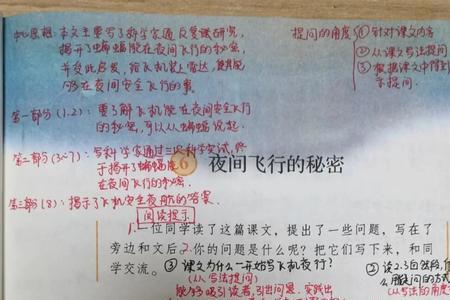 中心思想：本文主要写了科学家通过反复试研究，
揭开了蝙蝠能在夜间飞行的秘密，
并受此启发，给飞机装上雷达，使其能
够在夜间安全飞行的事。
提问的角度：①针对课文内容
②从课文写法提问
③根据课文中得到
示提问。
第一部分(1.2)：要了解飞机能在夜间安全飞行
的秘密，可以从蝙蝠说起。
第二部分(3~7)：写科学家通过三次科学实试，终
于揭开了蝙蝠能在
夜间飞行的秘密.
6 夜间飞行的秘密
第三部分(8)：揭示了飞机安全夜航的答案.
阅读提示
1.一位同学读了这篇课文，提出了一些问题，写在了
旁边和文后.2.你的问题是什么呢？把它们写下来，和同
学交流。③课文为什么一开始写飞机夜行？
(从写法提问)
能够吸引读者，引出问题.
②读2.3自然段，
么 提问的方式
(从写法的角度